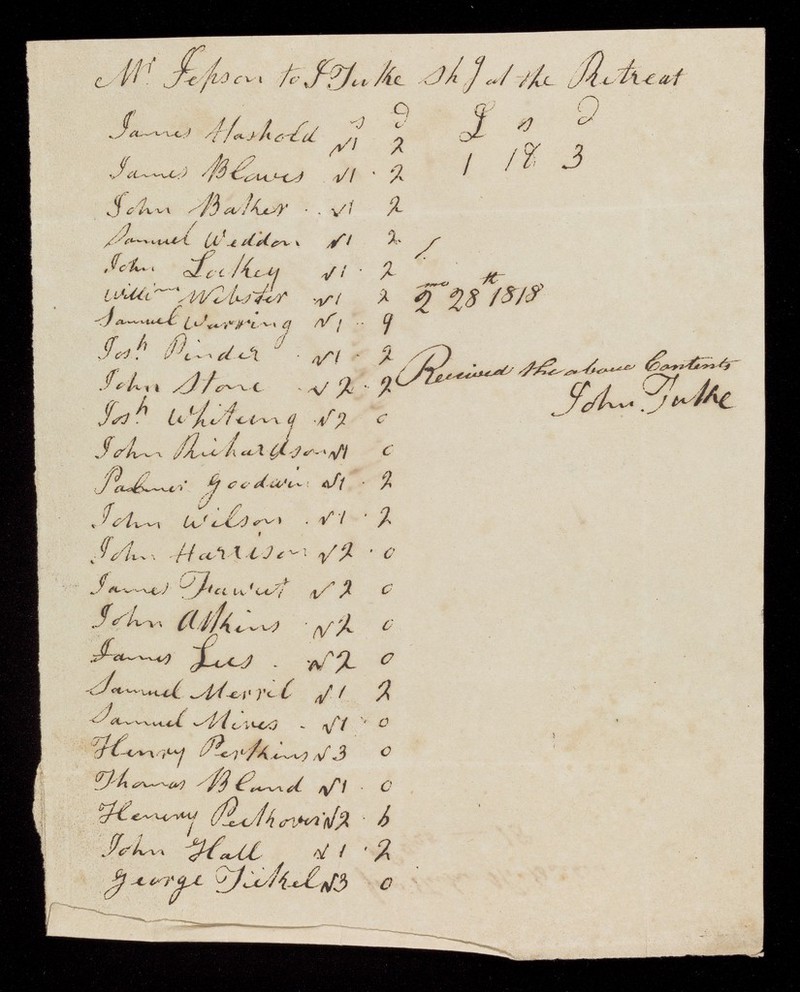 Mr. Jepson to J Tuke Shg at the Retreat
s d £ s d
James Hashold √1 2 1 18 3
James Blowes √1 · 2
John Baker √1 2
Samuel Weddon √1 2
John Lockey √1 · 2
Willim Webster √1 2 2mo 28th 1818
Samuel Warring √1 · 9
Josh. Pinder √1 · 2
John Stone √2 · 2 Received the above Contents
Josh. Whiteing √2 0 John Tuke
John Richardson √1 0
Palmer Goodwin √1 · 2
John Wilson √1 · 2
John Harrison √2 · 0
James Fawcet √2 0
John Atkins √2 0
James Lees √2 0
Samuel Merril √1 2
Samuel Mires √1 · 0
Henry Perkins √3 0
Thomas Bland √1 · 0
Henery √2 · 6
John Hall √1 · 2
George √3 0